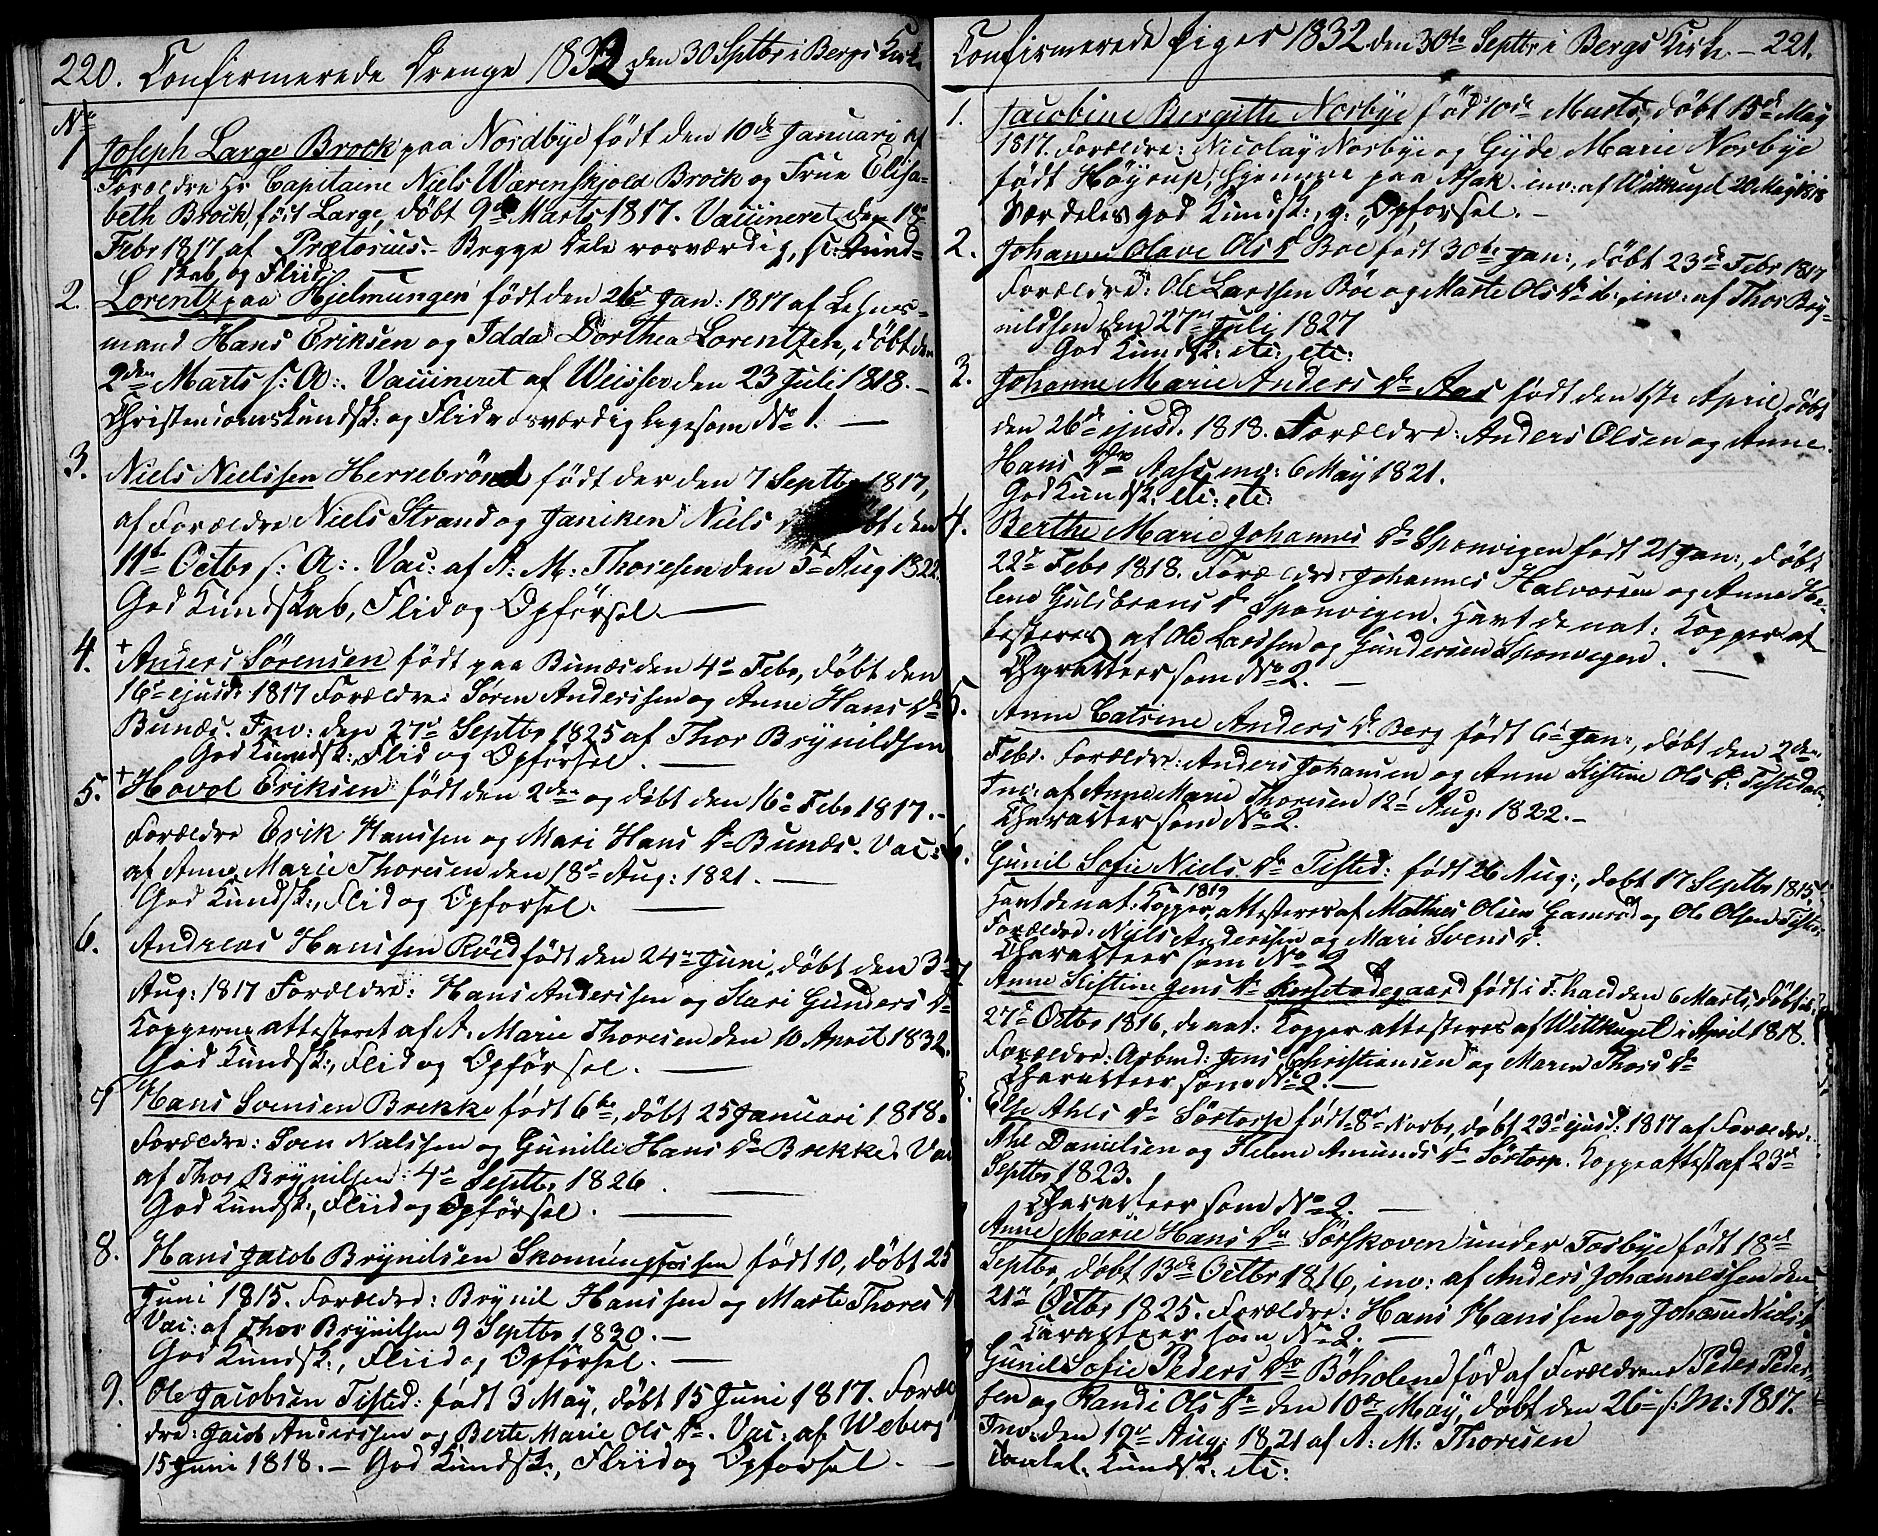 220. Confirmerede Drenge 1832 den 30 Septbr i Bergs Kirke
No
1 Joseph Large Brock paa Nordbye født den 10de Januari af
Forældre Hr Capitaine Niels Wærenskjold Brock og Frue Elisa-
beth Brock, født Large, døbt 9de Marts 1817. Vaccineret den 18
Febr 1817 af Prætorius. Begge Dele rosværdig, sc: Kund-
skab og Fliid.
2. Lorentz paa Hjelmungen født den 26 Jan: 1817 af Lehns-
mand Hans Eriksen og Idda Dorthea Lorentzen, døbt den
2den Marts s: A:. Vaccineret af Weisser den 23 Juli 1818. -
Christendomskundsk: og Flid rosværdig ligesom No 1. —
3. Niels Nielssen Herrebrøed født der den 7 Septbr 1817,
af Forældre Niels Strand og Janiken Niels døbt den
11te Octbr s: A:. Vac: af A: M: Thoresen den 5t Aug 1822.
God Kundskab, Flid og Opførsel —
4. + Anders Sørensen født paa Bunæs den 4de Febr, døbt den
16de ejusd: 1817 Forældre: Søren Anderssen og Anne Hans Dr
Bunæs. Inv: den 27de Septbr 1825 af Thor Brynildsen
God Kundsk:, Flid og Opførsel. —
5. + Hovel Eriksen født den 2den og døbt den 16de Febr 1817. -
Forældre Erik Hanssen og Mari Hans Dr Bunæs. Vac:
af Anne Marie Thoresen den 18de Aug: 1821. —
God Kundsk:, Flid og Opførsel. —
6. Andreas Hanssen Røed født den 24de Juni, døbt den 3de
Aug: 1817 Forældre: Hans Anderssen og Kari Gunders Dr
Kopperne attesteret af A. Marie Thoresen den 10 April 1832.
God Kundsk:, Flid og Opførsel. —
7 Hans Svensen Brekke født 6te, døbt 25 Januari 1818.
Forældre: Sven Nielssen og Gunille Hans Dr Brekke. Vac
af Thor Brynilsen 4de Septbr 1826. —
God Kundsk:, Fliid og Opførsel. —
8. Hans Jacob Brynilsen født 10, døbt 25
Juni 1815. Forældre: Brynil Hanssen og Marte Thores Dr
Vac: af Thor Brynilsen 9 Septbr 1830. —
God Kundsk:, Fliid og Opførsel. —
9. Ole Jacobsen Tisted: født 3 May, døbt 15 Juni 1817. Foræl
dre: Jacob Anderssen og Berte Marie Ols Dr. Vac: af Weberg
15 Juni 1818. — God Kundsk:, Fliid og Opførsel. —
Confirmerede Piger 1832 den 30te Septbr i Bergs Kirke. — 221.
1. Jacobine Bergitte Norbye født 10de Marts, døbt 15de May
1817. Forældre: Nicolay Norbye og Gyde Marie Norbye
født Høyrup, hjemme paa Asak. inv: af Wittkugel 20 May 1818
Særdeles god Kundsk:, g: Opførsel. —
2. Johanne Olave Ols Dr Böe født 30te Jan:, døbt 23de Febr 1817
Forældre: Ole Larssen Böe og Marte Ols Dr ib:, inv: af Thor Bry-
nildsen den 27de Juli 1827
God Kundsk: etc: etc:
3. Johanne Marie Anders Dr Aas født den 1ste April, døbt
den 26de ejusd. 1818. Forældre: Anders Olsen og Anne
Hans Dr Aas, inv: 6 May 1821.
God Kundsk: etc: etc:
4. Berthe Marie Johannes Dr Sponvigen født 21 Jan:, døbt
22de Febr 1818. Forældre: Johannes Halvorsen og Anne He-
lene Gulsbrans Dr Sponvigen. Havt de nat: Kopper at-
testeres af Ole Larssen og Gundersen Sponvigen. —
Character som No 2. —
5. Anne Catrine Anders Dr Berg født 6te Jan:, døbt den 2den
Febr. Forældre: Anders Johansen og Anne Kistine Ols Dr Tistedalen
Inv: af Anne Marie Thoresen 12te Aug: 1822. —
Character som No 2.
6. Gunil Sofie Niels Dr Tisted: født 26 Aug:, døbt 17 Septbr 1815
Havt de nat: Kopper 1819, attesteres af Mathies Olsen og Ole Olsen Tisted:
Forældre: Niels Anderssen og Mari Svens Dr.
Character som No 2
Anne Kistine Jens Dr født i F:hald den 6 Marts, døbt
27de Octbr 1816, de nat: Kopper attesteres af Wittkugel i April 1818.
Forældre: Arbmd: Jens Christiansen og Maren Thors Dr
Character som No 2. —
8. Else Ahls Dr Sörtorp født 8de Novbr, døbt 23de ejusd: 1817 af Forældre:
Ahl Danielsen og Helene Amunds Dr Sörtorp. Koppeattest af 23de
Septbr 1823.
Character som No 2. —
Anne Marie Hans Dr Sörskoven under Torbye født 18de
Septbr, døbt 13de Octbr 1816, inv: af Anders Johannessen den
21de Octbr 1825. Forældre: Hans Hanssen og Johane Niels
Caracteer som No 2. —
Gunil Sofie Peders Dr Böholene fød af Forældrene Peder Peder-
sen og Randi Ols Dr den 10de May, døbt den 26de s: M: 1817.
Inv: den 12te Aug: 1821 af A: M: Thoresen
Kundsk: etc: